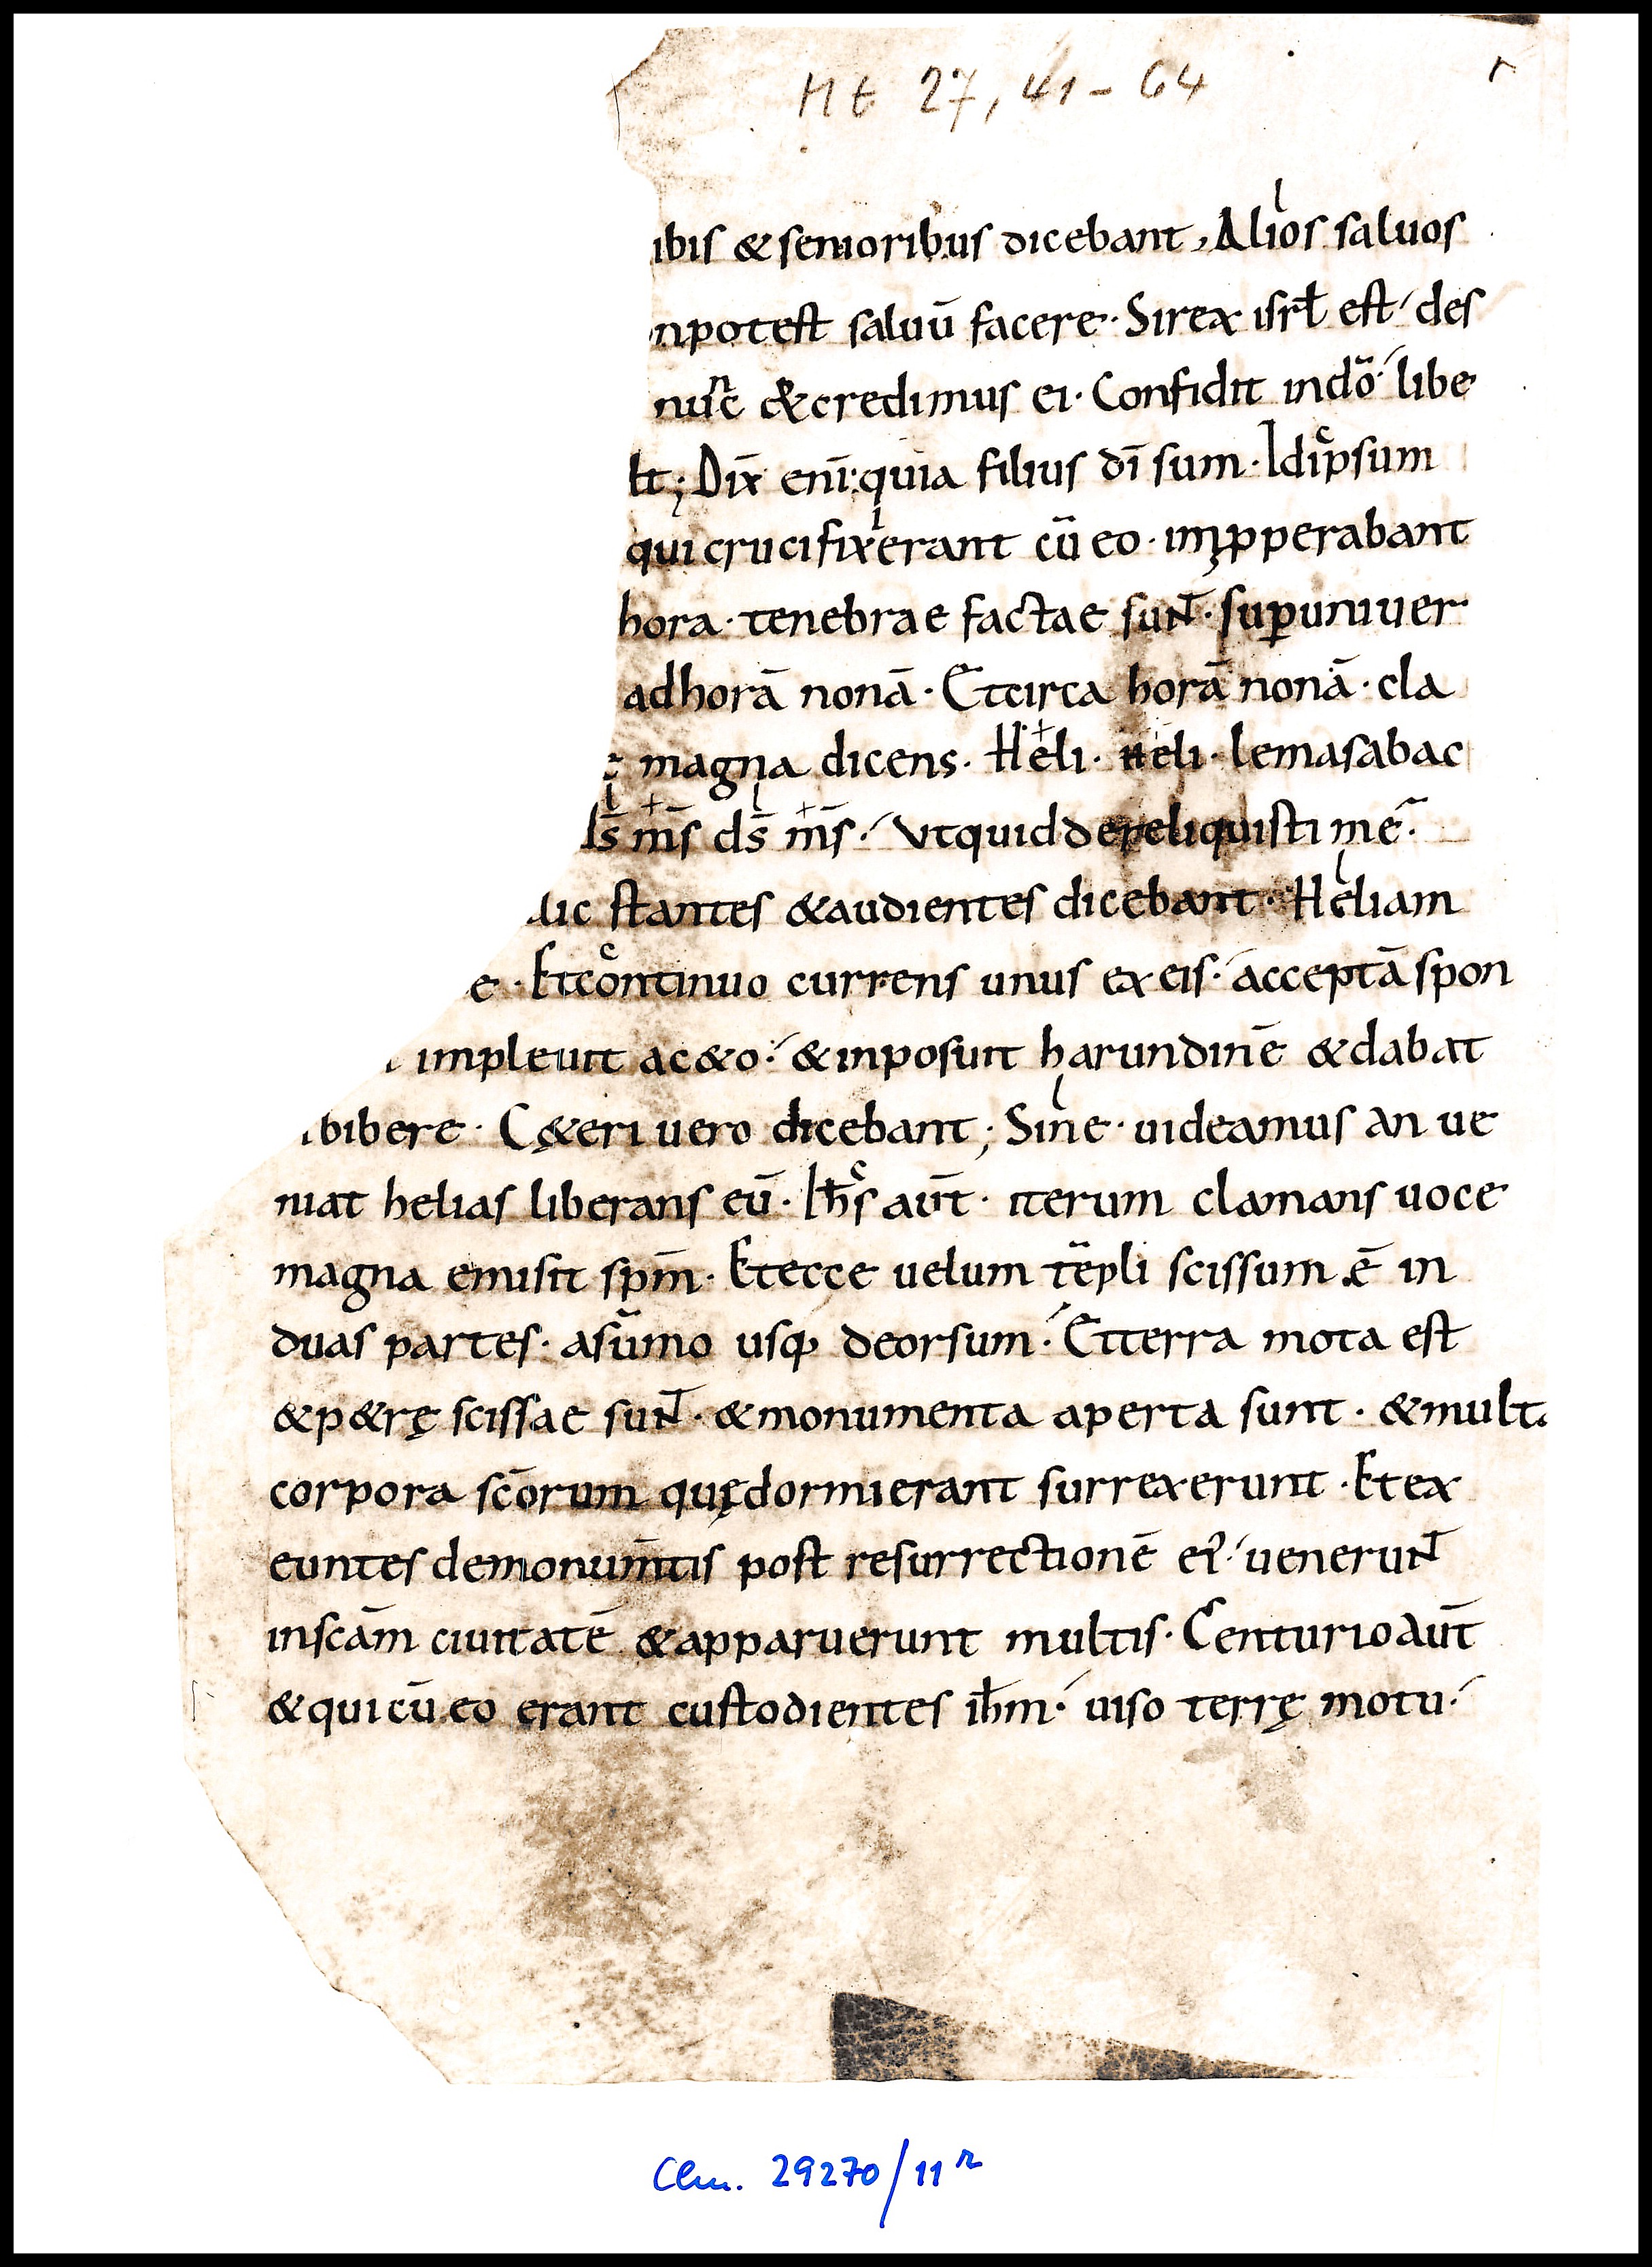 Mt 27, 41-64 r
ibis & senioribus dicebant, Alios saluos
npotest saluū facere. Sirex isrł est des
nunc & credimus ei. Confidit indō libe
lt; Dix̄ enī quia filius dī sum. Idipsum
qui crucifixerant cū eo. impperabant
hora. tenebrae factae sunt. sup uniuer
adhorā nonā. Etcirca horā nonā. cla
magna dicens. Heli. heli. lemasabac
ds̄ ms̄ ds̄ ms̄. Vtquid dereliquisti me.
lic stantes & audientes dicebant. Heliam
e. Et continuo currens unus ex eis. acceptā spon
impleuit ac&o. & inposuit harundinē & dabat
bibere. C&eri uero dicebant; Sine. uideamus an ue
niat helias liberans eū. Ihs̄ aut̄. iterum clamans uoce
magna emisit spm̄. Etecce uelum tēpli scissum ē in
duas partes. asūmo usq; deorsum. Etterra mota est
& p&rę scissae sunt. & monumenta aperta sunt. & mult
corpora scōrum quę dormierant surrexerunt. Et ex
euntes demonum̄tis post resurrectionē ei᾽. uenerunt
inscām ciuitatē & apparuerunt multis. Centurio aut̄
& qui cū eo erant custodientes ihm̄. uiso terrę motu.
Clm. 29270/11r